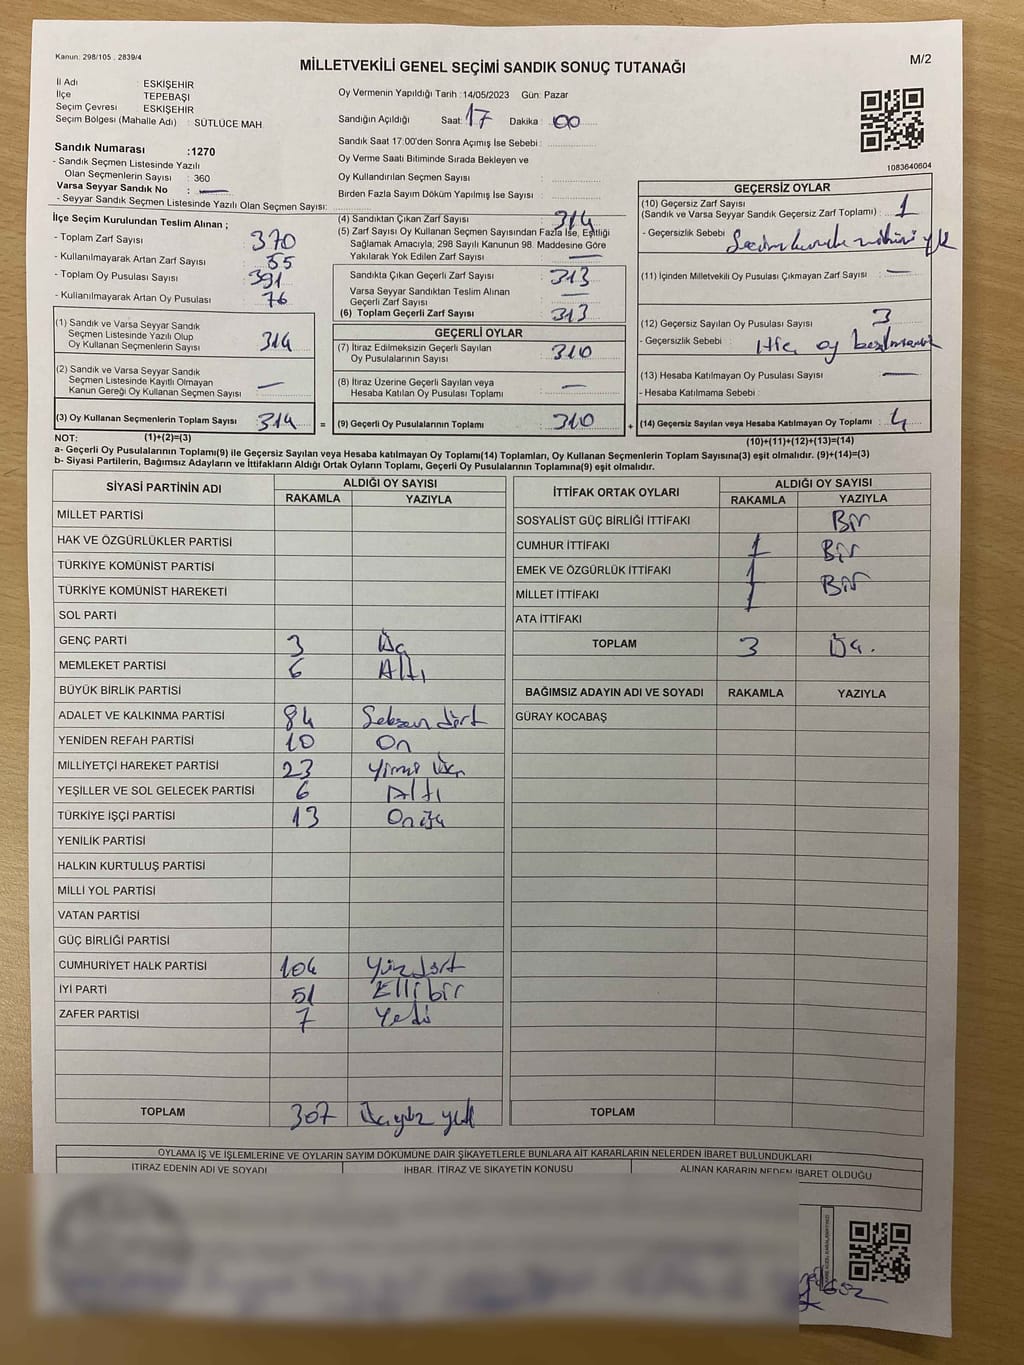 Kanun: 298/105 , 2839/4
M/2
MİLLETVEKİLİ GENEL SEÇİMİ SANDIK SONUÇ TUTANAĞI
İl Adı : ESKİŞEHİR
İlçe : TEPEBAŞI
Seçim Çevresi : ESKİŞEHİR
Seçim Bölgesi (Mahalle Adı) : SÜTLÜCE MAH.
Sandık Numarası :1270
- Sandık Seçmen Listesinde Yazılı
Olan Seçmenlerin Sayısı : 360
Varsa Seyyar Sandık No : —
- Seyyar Sandık Seçmen Listesinde Yazılı Olan Seçmen Sayısı:
Oy Vermenin Yapıldığı Tarih :14/05/2023 Gün: Pazar
Sandığın Açıldığı Saat: 17 Dakika : 00
Sandık Saat 17:00'den Sonra Açımış İse Sebebi :
Oy Verme Saati Bitiminde Sırada Bekleyen ve
Oy Kullandırılan Seçmen Sayısı :
Birden Fazla Sayım Döküm Yapılmış İse Sayısı :
1083640604
İlçe Seçim Kurulundan Teslim Alınan ;
- Toplam Zarf Sayısı : 370
- Kullanılmayarak Artan Zarf Sayısı : 55
- Toplam Oy Pusulası Sayısı : 391
- Kullanılmayarak Artan Oy Pusulası : 76
(1) Sandık ve Varsa Seyyar Sandık
Seçmen Listesinde Yazılı Olup
Oy Kullanan Seçmenlerin Sayısı : 314
(2) Sandık ve Varsa Seyyar Sandık
Seçmen Listesinde Kayıtlı Olmayan
Kanun Gereği Oy Kullanan Seçmen Sayısı : —
(3) Oy Kullanan Seçmenlerin Toplam Sayısı : 314 =
(4) Sandıktan Çıkan Zarf Sayısı : 314
(5) Zarf Sayısı Oy Kullanan Seçmen Sayısından Fazla İse, Eşitliği
Sağlamak Amacıyla, 298 Sayılı Kanunun 98. Maddesine Göre
Yakılarak Yok Edilen Zarf Sayısı : —
Sandıkta Çıkan Geçerli Zarf Sayısı : 313
Varsa Seyyar Sandıktan Teslim Alınan
Geçerli Zarf Sayısı : —
(6) Toplam Geçerli Zarf Sayısı : 313
GEÇERLİ OYLAR
(7) İtiraz Edilmeksizin Geçerli Sayılan
Oy Pusulalarının Sayısı : 310
(8) İtiraz Üzerine Geçerli Sayılan veya
Hesaba Katılan Oy Pusulası Toplamı : —
(9) Geçerli Oy Pusulalarının Toplamı : 310 +
GEÇERSİZ OYLAR
(10) Geçersiz Zarf Sayısı
(Sandık ve Varsa Seyyar Sandık Geçersiz Zarf Toplamı) : 1
- Geçersizlik Sebebi : Seçim kurulu mührü yok
(11) İçinden Milletvekili Oy Pusulası Çıkmayan Zarf Sayısı : —
(12) Geçersiz Sayılan Oy Pusulası Sayısı : 3
- Geçersizlik Sebebi : Hiç oy basılmamış
(13) Hesaba Katılmayan Oy Pusulası Sayısı : —
- Hesaba Katılmama Sebebi :
(14) Geçersiz Sayılan veya Hesaba Katılmayan Oy Toplamı : 4
NOT: (1)+(2)=(3) (10)+(11)+(12)+(13)=(14)
a- Geçerli Oy Pusulalarının Toplamı(9) ile Geçersiz Sayılan veya Hesaba katılmayan Oy Toplamı(14) Toplamları, Oy Kullanan Seçmenlerin Toplam Sayısına(3) eşit olmalıdır. (9)+(14)=(3)
b- Siyasi Partilerin, Bağımsız Adayların ve İttifakların Aldığı Ortak Oyların Toplamı, Geçerli Oy Pusulalarının Toplamına(9) eşit olmalıdır.
SİYASİ PARTİNİN ADI ALDIĞI OY SAYISI
RAKAMLA YAZIYLA
MİLLET PARTİSİ
HAK VE ÖZGÜRLÜKLER PARTİSİ
TÜRKİYE KOMÜNİST PARTİSİ
TÜRKİYE KOMÜNİST HAREKETİ
SOL PARTİ
GENÇ PARTİ 3 Üç
MEMLEKET PARTİSİ 6 Altı
BÜYÜK BİRLİK PARTİSİ
ADALET VE KALKINMA PARTİSİ 84 Seksen dört
YENİDEN REFAH PARTİSİ 10 On
MİLLİYETÇİ HAREKET PARTİSİ 23 Yirmi Üç
YEŞİLLER VE SOL GELECEK PARTİSİ 6 Altı
TÜRKİYE İŞÇİ PARTİSİ 13 Onüç
YENİLİK PARTİSİ
HALKIN KURTULUŞ PARTİSİ
MİLLİ YOL PARTİSİ
VATAN PARTİSİ
GÜÇ BİRLİĞİ PARTİSİ
CUMHURİYET HALK PARTİSİ 104 Yüz dört
İYİ PARTİ 51 Elli bir
ZAFER PARTİSİ 7 Yedi
TOPLAM 307 Üçyüz yedi
İTTİFAK ORTAK OYLARI ALDIĞI OY SAYISI
RAKAMLA YAZIYLA
SOSYALİST GÜÇ BİRLİĞİ İTTİFAKI Bir
CUMHUR İTTİFAKI 1 Bir
EMEK VE ÖZGÜRLÜK İTTİFAKI 1 Bir
MİLLET İTTİFAKI 1
ATA İTTİFAKI
TOPLAM 3 Üç.
BAĞIMSIZ ADAYIN ADI VE SOYADI RAKAMLA YAZIYLA
GÜRAY KOCABAŞ
TOPLAM
OYLAMA İŞ VE İŞLEMLERİNE VE OYLARIN SAYIM DÖKÜMÜNE DAİR ŞİKAYETLERLE BUNLARA AİT KARARLARIN NELERDEN İBARET BULUNDUKLARI
İTİRAZ EDENİN ADI VE SOYADI İHBAR, İTİRAZ VE ŞİKAYETİN KONUSU ALINAN KARARIN NEDEN İBARET OLDUĞU